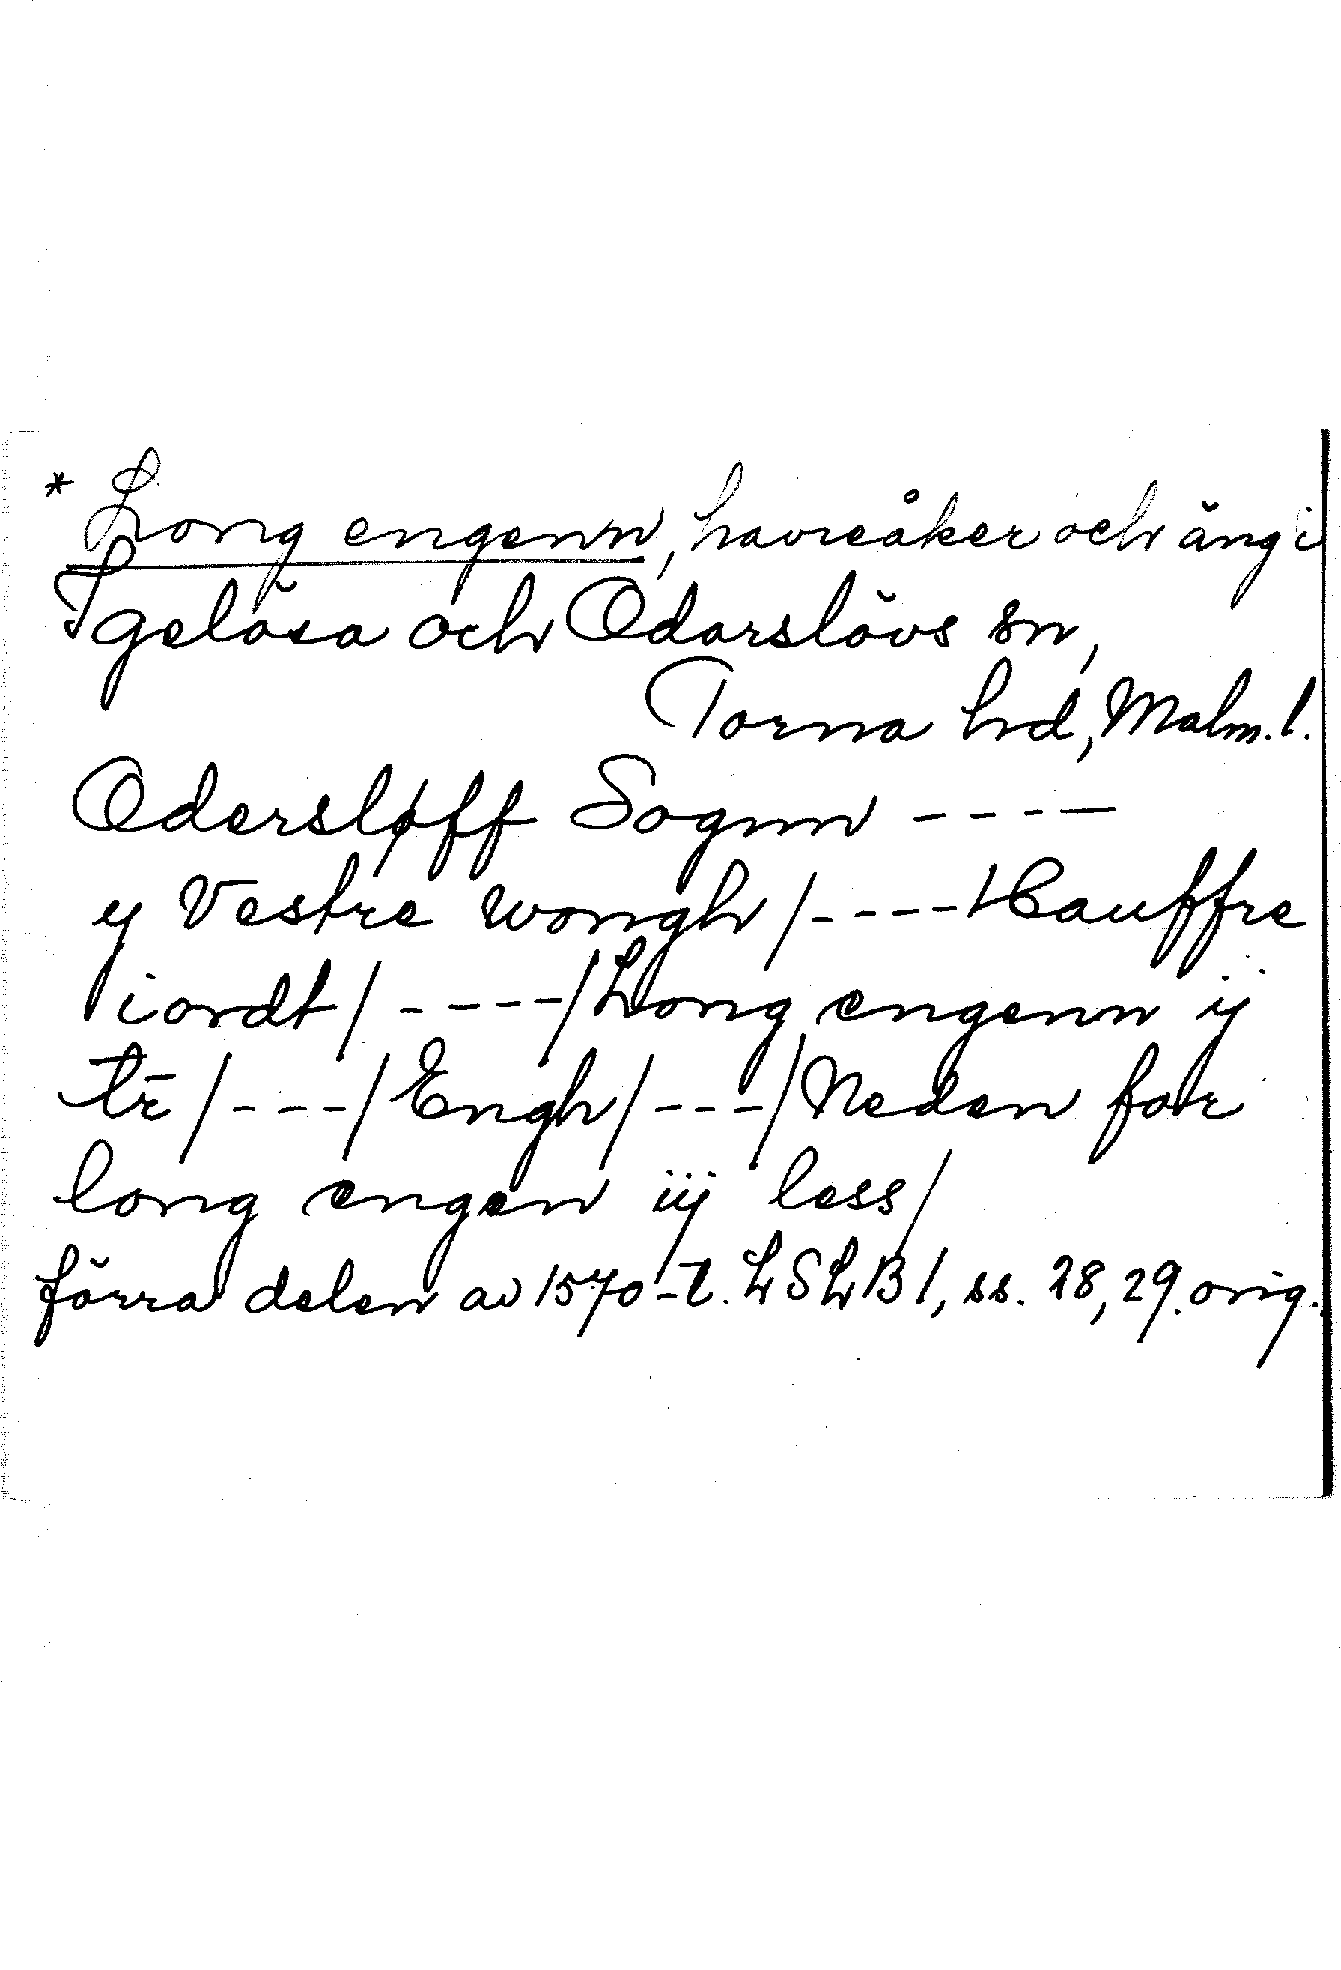 * Long engenn, havreåker och äng i
Igelösa och Odarslövs sn,
Torna hd, Malm. l.
Odersløff Sognn ----
y Vestre wongh/----Hauffre
iordt/----/Long engenn ij
tr̄/---/Engh/---/Neden for
long engen iij less/
förra delen av 1570-t. LSLB 1, ss. 28, 29. orig.